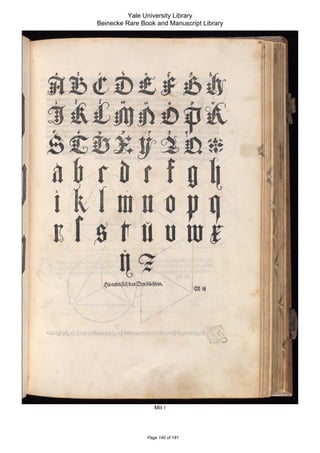 Yale University Library
Beinecke Rare Book and Manuscript Library
A B C D E F G H
I K L M N O P R
S T V X Y Z Q
a b c d e f g h
i k l m n o p q
r ſ s t u v w x
ÿ z
Hie endet sich das Drit büchlein.
M iij
Miii r
Page 140 of 181